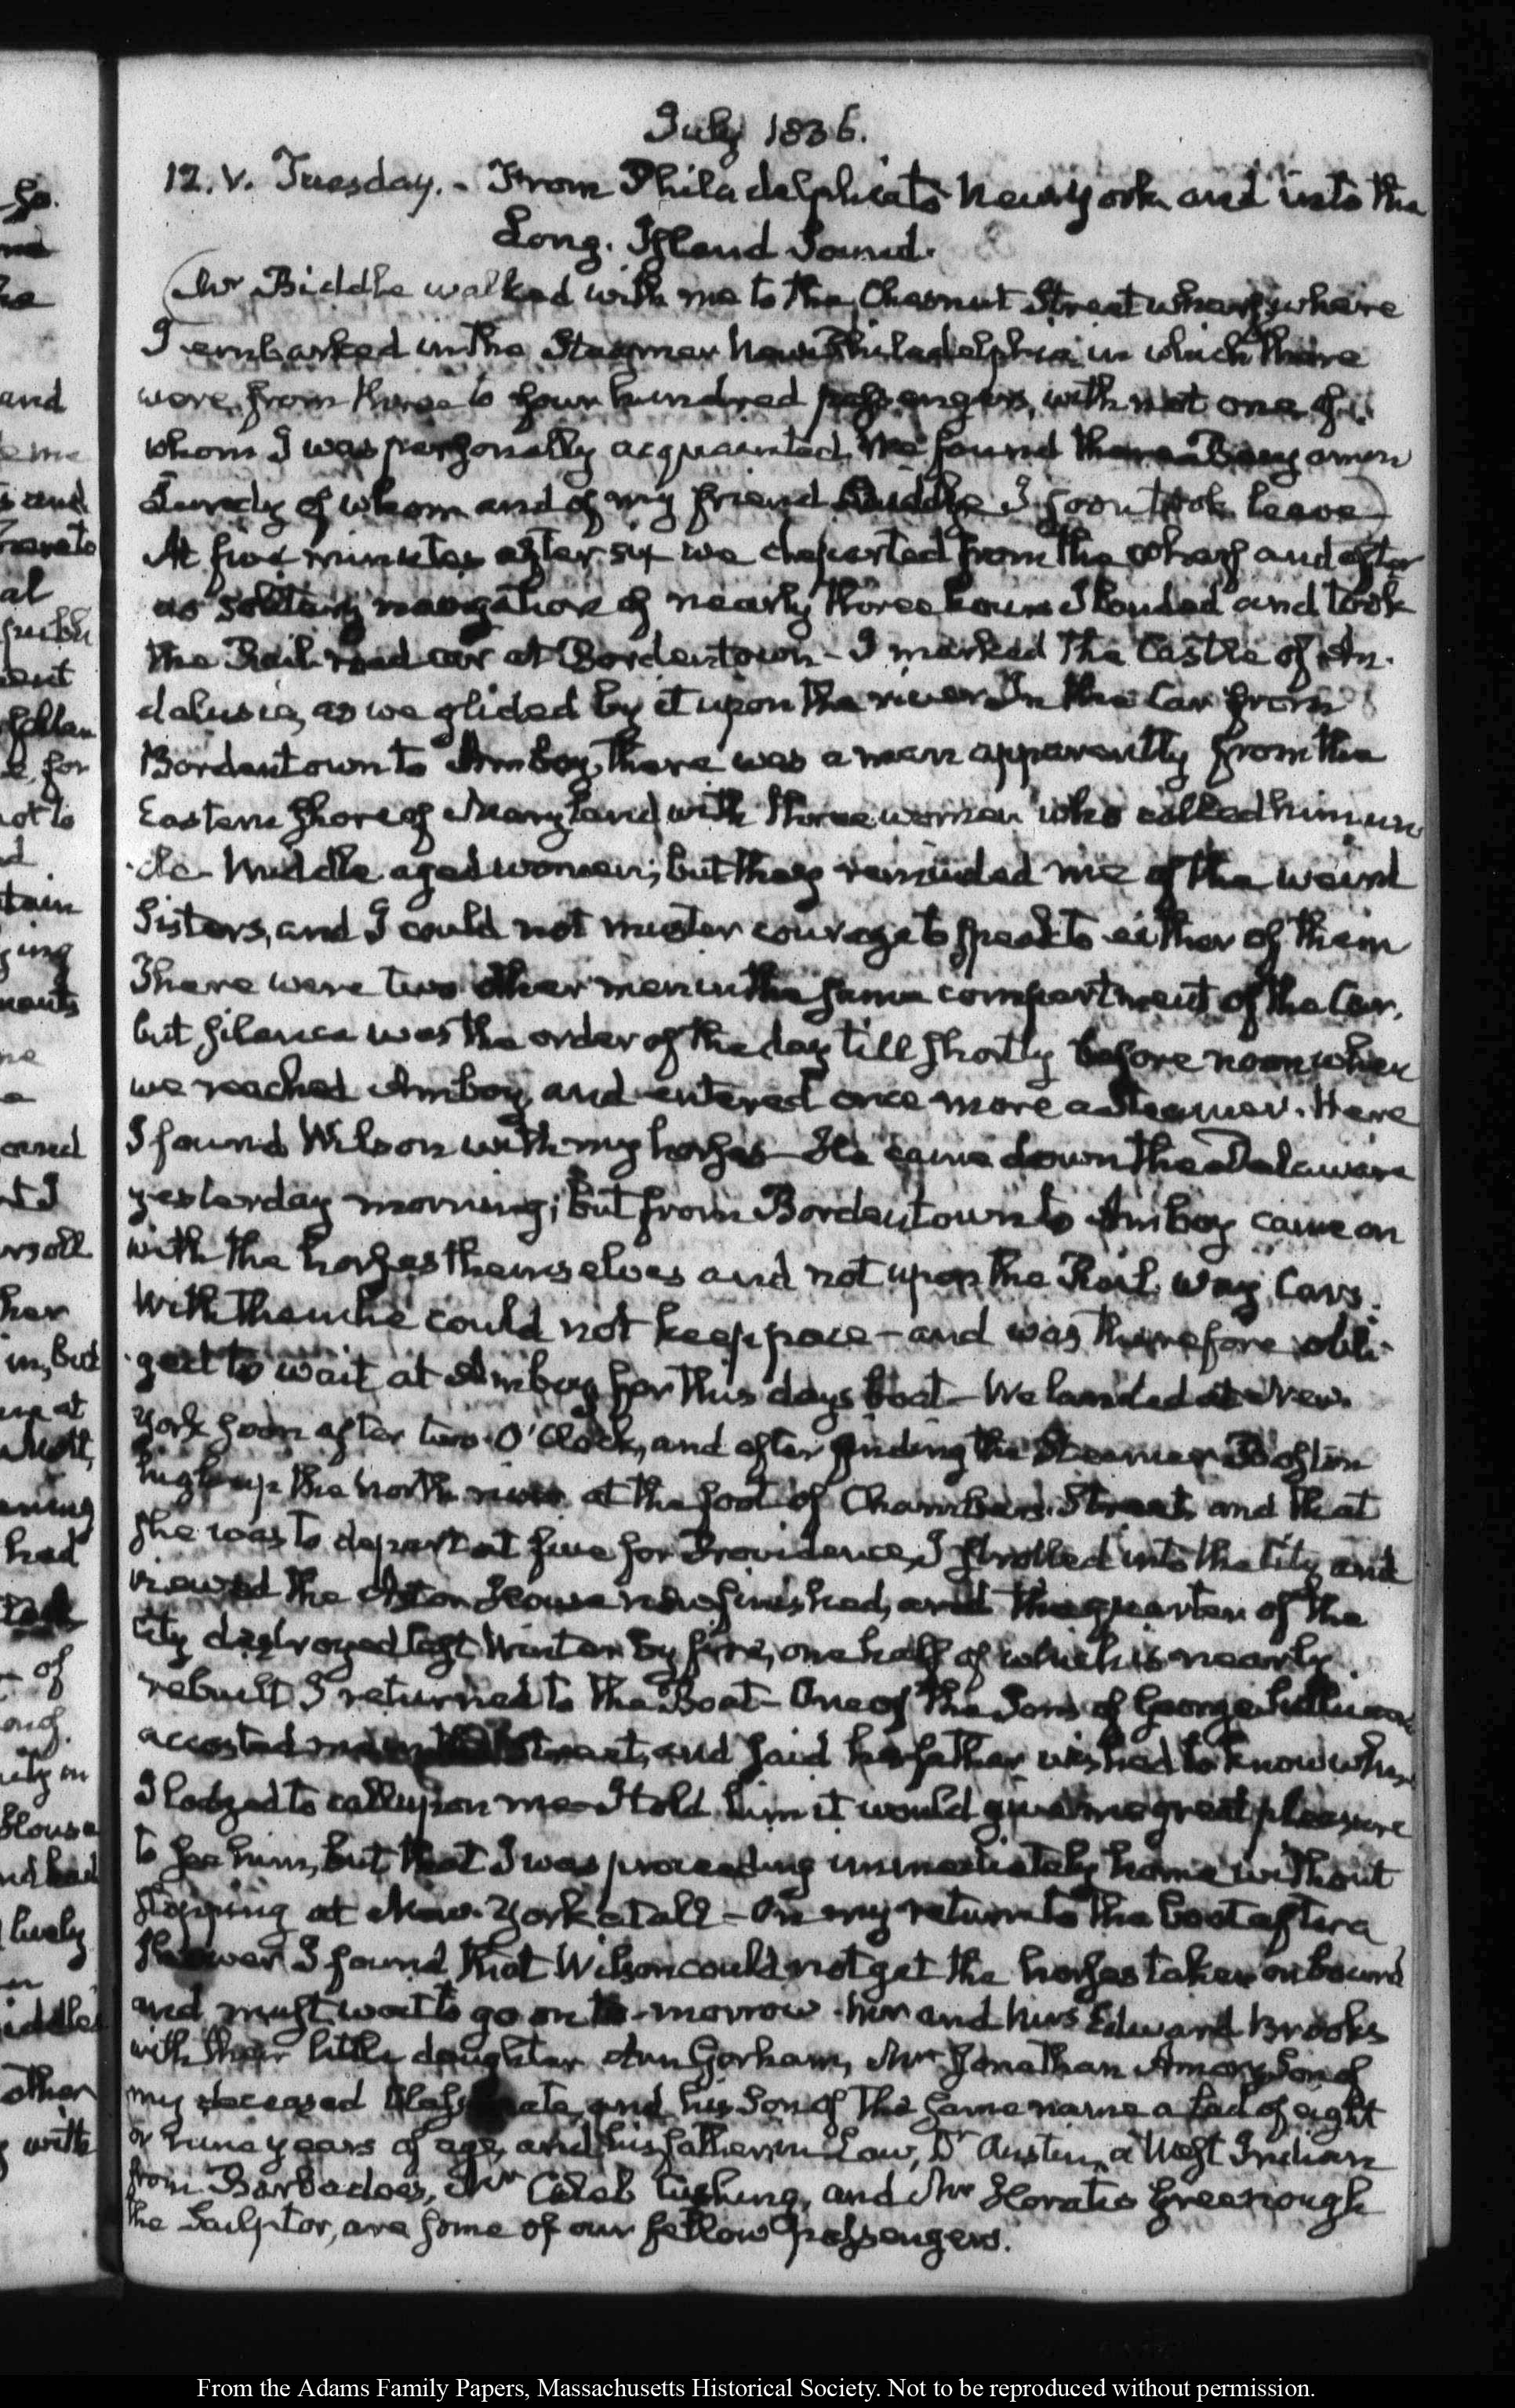 July 1836.
12. V. Tuesday. - From Philadelphia to New York and into the
Long. Island Sound.
Mr Biddle walked with me to the Chesnut Street wharf, where
I embarked in the Steamer New Philadelphia in which there
were from three to four hundred passengers, with not one of
whom I was personally acquainted. We found there
of whom and of my friend Biddle I soon took leave
At five minutes after six we departed from the wharf and after
a solitary navigation of nearly three hours I landed and took
the Rail road car at Bordentown - I marked the Castle of An-
dalusia, as we glided by it upon the river. In the Car from
Bordentown to Amboy, there was a man apparently from the
Eastern Shore of Maryland, with three women who called him un-
cle - Middle aged women; but they reminded me of the weird
Sisters, and I could not muster courage to speak to either of them
There were two other men in the same compartment of the Car,
but silence was the order of the day till shortly before noon when
we reached Amboy, and entered once more a Steamer. Here
I found Wilson with my horses - He came down the Delaware
yesterday morning; but from Bordentown to Amboy came on
with the horses themselves and not upon the Rail. way Cars.
With them he could not keep pace - and was therefore obli-
ged to wait at Amboy for this days boat - We landed at New.
York soon after two. O'Clock, and after finding the Steamer Boston
high up the North river at the foot of Chambers. Street, and that
she was to depart at five for Providence, I strolled into the City, and
viewed the Astor House now finished, and the quarter of the
City destroyed last Winter by fire, one half of which is nearly
rebuilt. I returned to the Boat - One of the Sons of George Sullivan
accosted me in the Street, and said his father wished to know where
I lodged to call upon me - I told him it would give me great pleasure
to see him, but that I was proceeding immediately home without
stopping at New. York at all - On my return to the boat after a
shower I found that Wilson could not get the horses taken on board
and must wait to go on to-morrow. Mr and Mrs Edward Brooks
with their little daughter Ann Gorham, Mr Jonathan Amory, Son of
my deceased Classmate, and his Son of the same name a lad of eight
or nine years of age, and his father in Law, Dr Austin, a West Indian
from Barbadoes, Mr Caleb Cushing, and Mr Horatio Greenough
the Sculptor, are some of our fellow passengers.
From the Adams Family Papers, Massachusetts Historical Society. Not to be reproduced without permission.